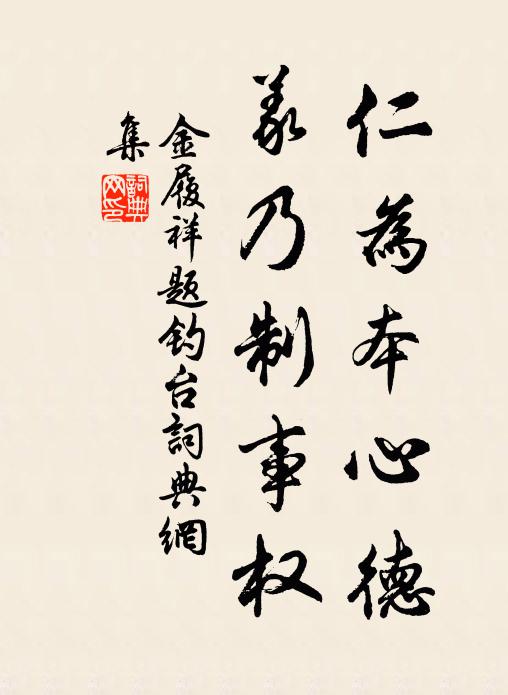 仁為本心德
義乃制事权
金履祥題釣台詞典網
集
詞典
网印